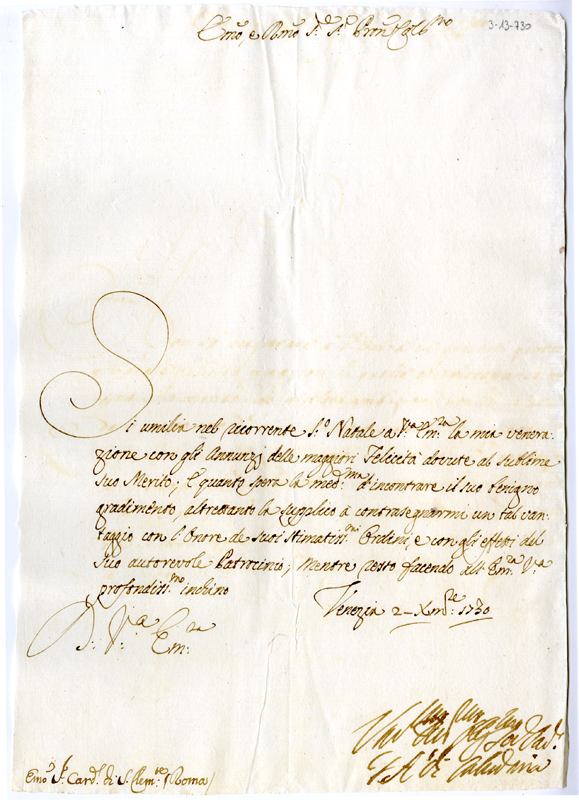 Emo, e Rmo Sr. Sr. Pron. Colmo
3-13-730
Si umilia nel ricorrente S.o Natale a V.ra Em.za la mia venera:
zione con gli Annunzj delle maggiori Felicità dovute al sublime
suo Merito; E quanto spera la med.ma d'incontrare il suo benigno
gradimento, altrettanto la supplico a contrasegnarmi un tal van-
taggio con l'Onore de suoi stimatiss.mi Ordini, e con gli effetti del
suo autorevole Patrocinio; Mentre resto facendo all' Em.za V.ra
profondiss.mo inchino
Venezia 2 Xmbre 1730
D: V.ra Em:za
Emo Sr. Card.l di S. Clem.te Roma/